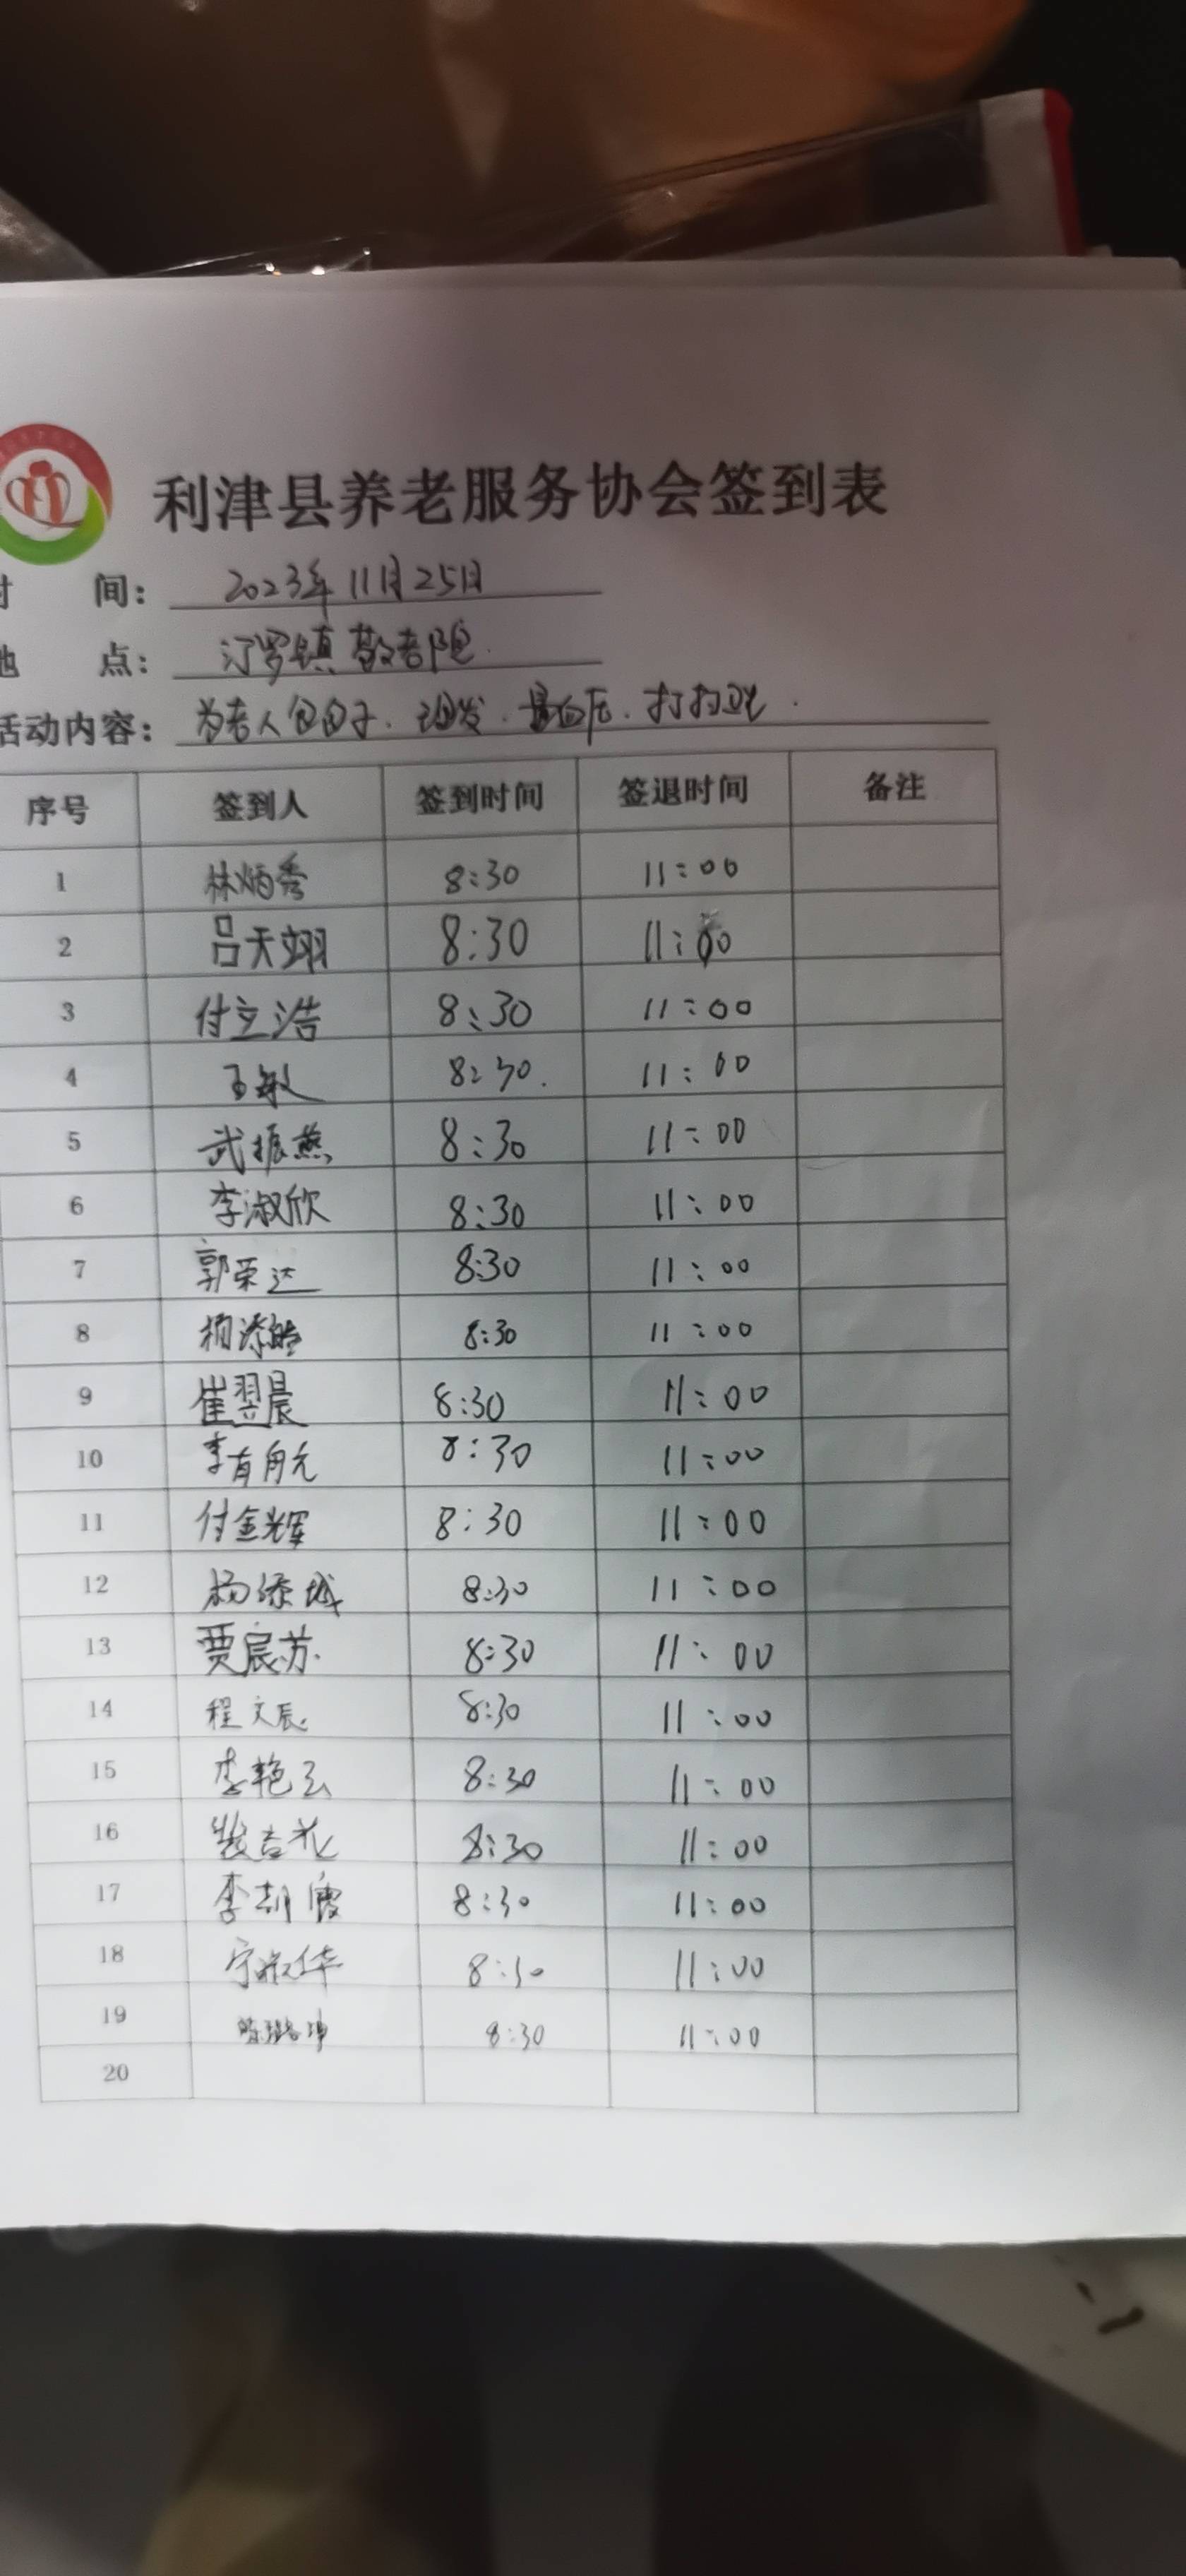 利津县养老服务协会签到表
时 间： 2023年11月25日
地 点： 汀罗镇敬老院.
活动内容： 为老人包包子. 理发. 量血压. 打扫卫生.
序号 签到人 签到时间 签退时间 备注
1 林炳秀 8:30 11:00
2 吕天翊 8:30 11:00
3 付立浩 8:30 11:00
4 王敏 8:30. 11:00
5 武振燕 8:30 11:00
6 李淑欣 8:30 11:00
7 郭荣达 8:30 11:00
8 8:30 11:00
9 崔翌晨 8:30 11:00
10 李有航 8:30 11:00
11 付金辉 8:30 11:00
12 杨添城 8:30 11:00
13 贾宸苏 8:30 11:00
14 程文辰 8:30 11:00
15 李艳云 8:30 11:00
16 裴吉花 8:30 11:00
17 李朝霞 8:30 11:00
18 宁淑华 8:30 11:00
19 8:30 11:00
20